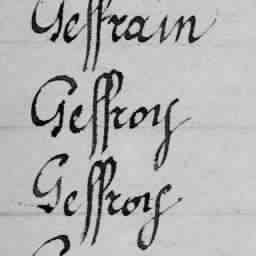 Geffrain
Geffroy
Geffroy